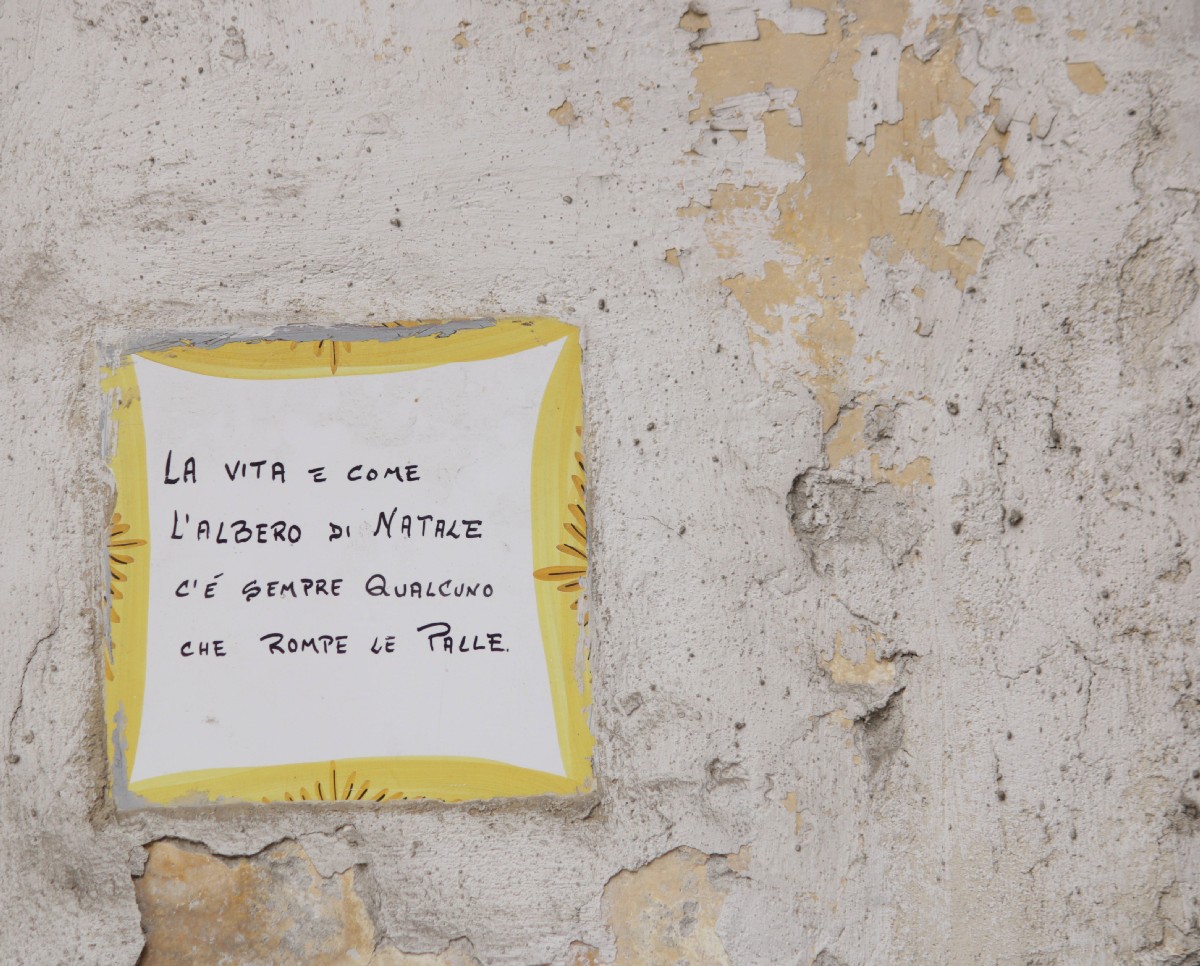 LA VITA E COME
L'ALBERO DI NATALE
C'É SEMPRE QUALCUNO
CHE ROMPE LE PALLE.